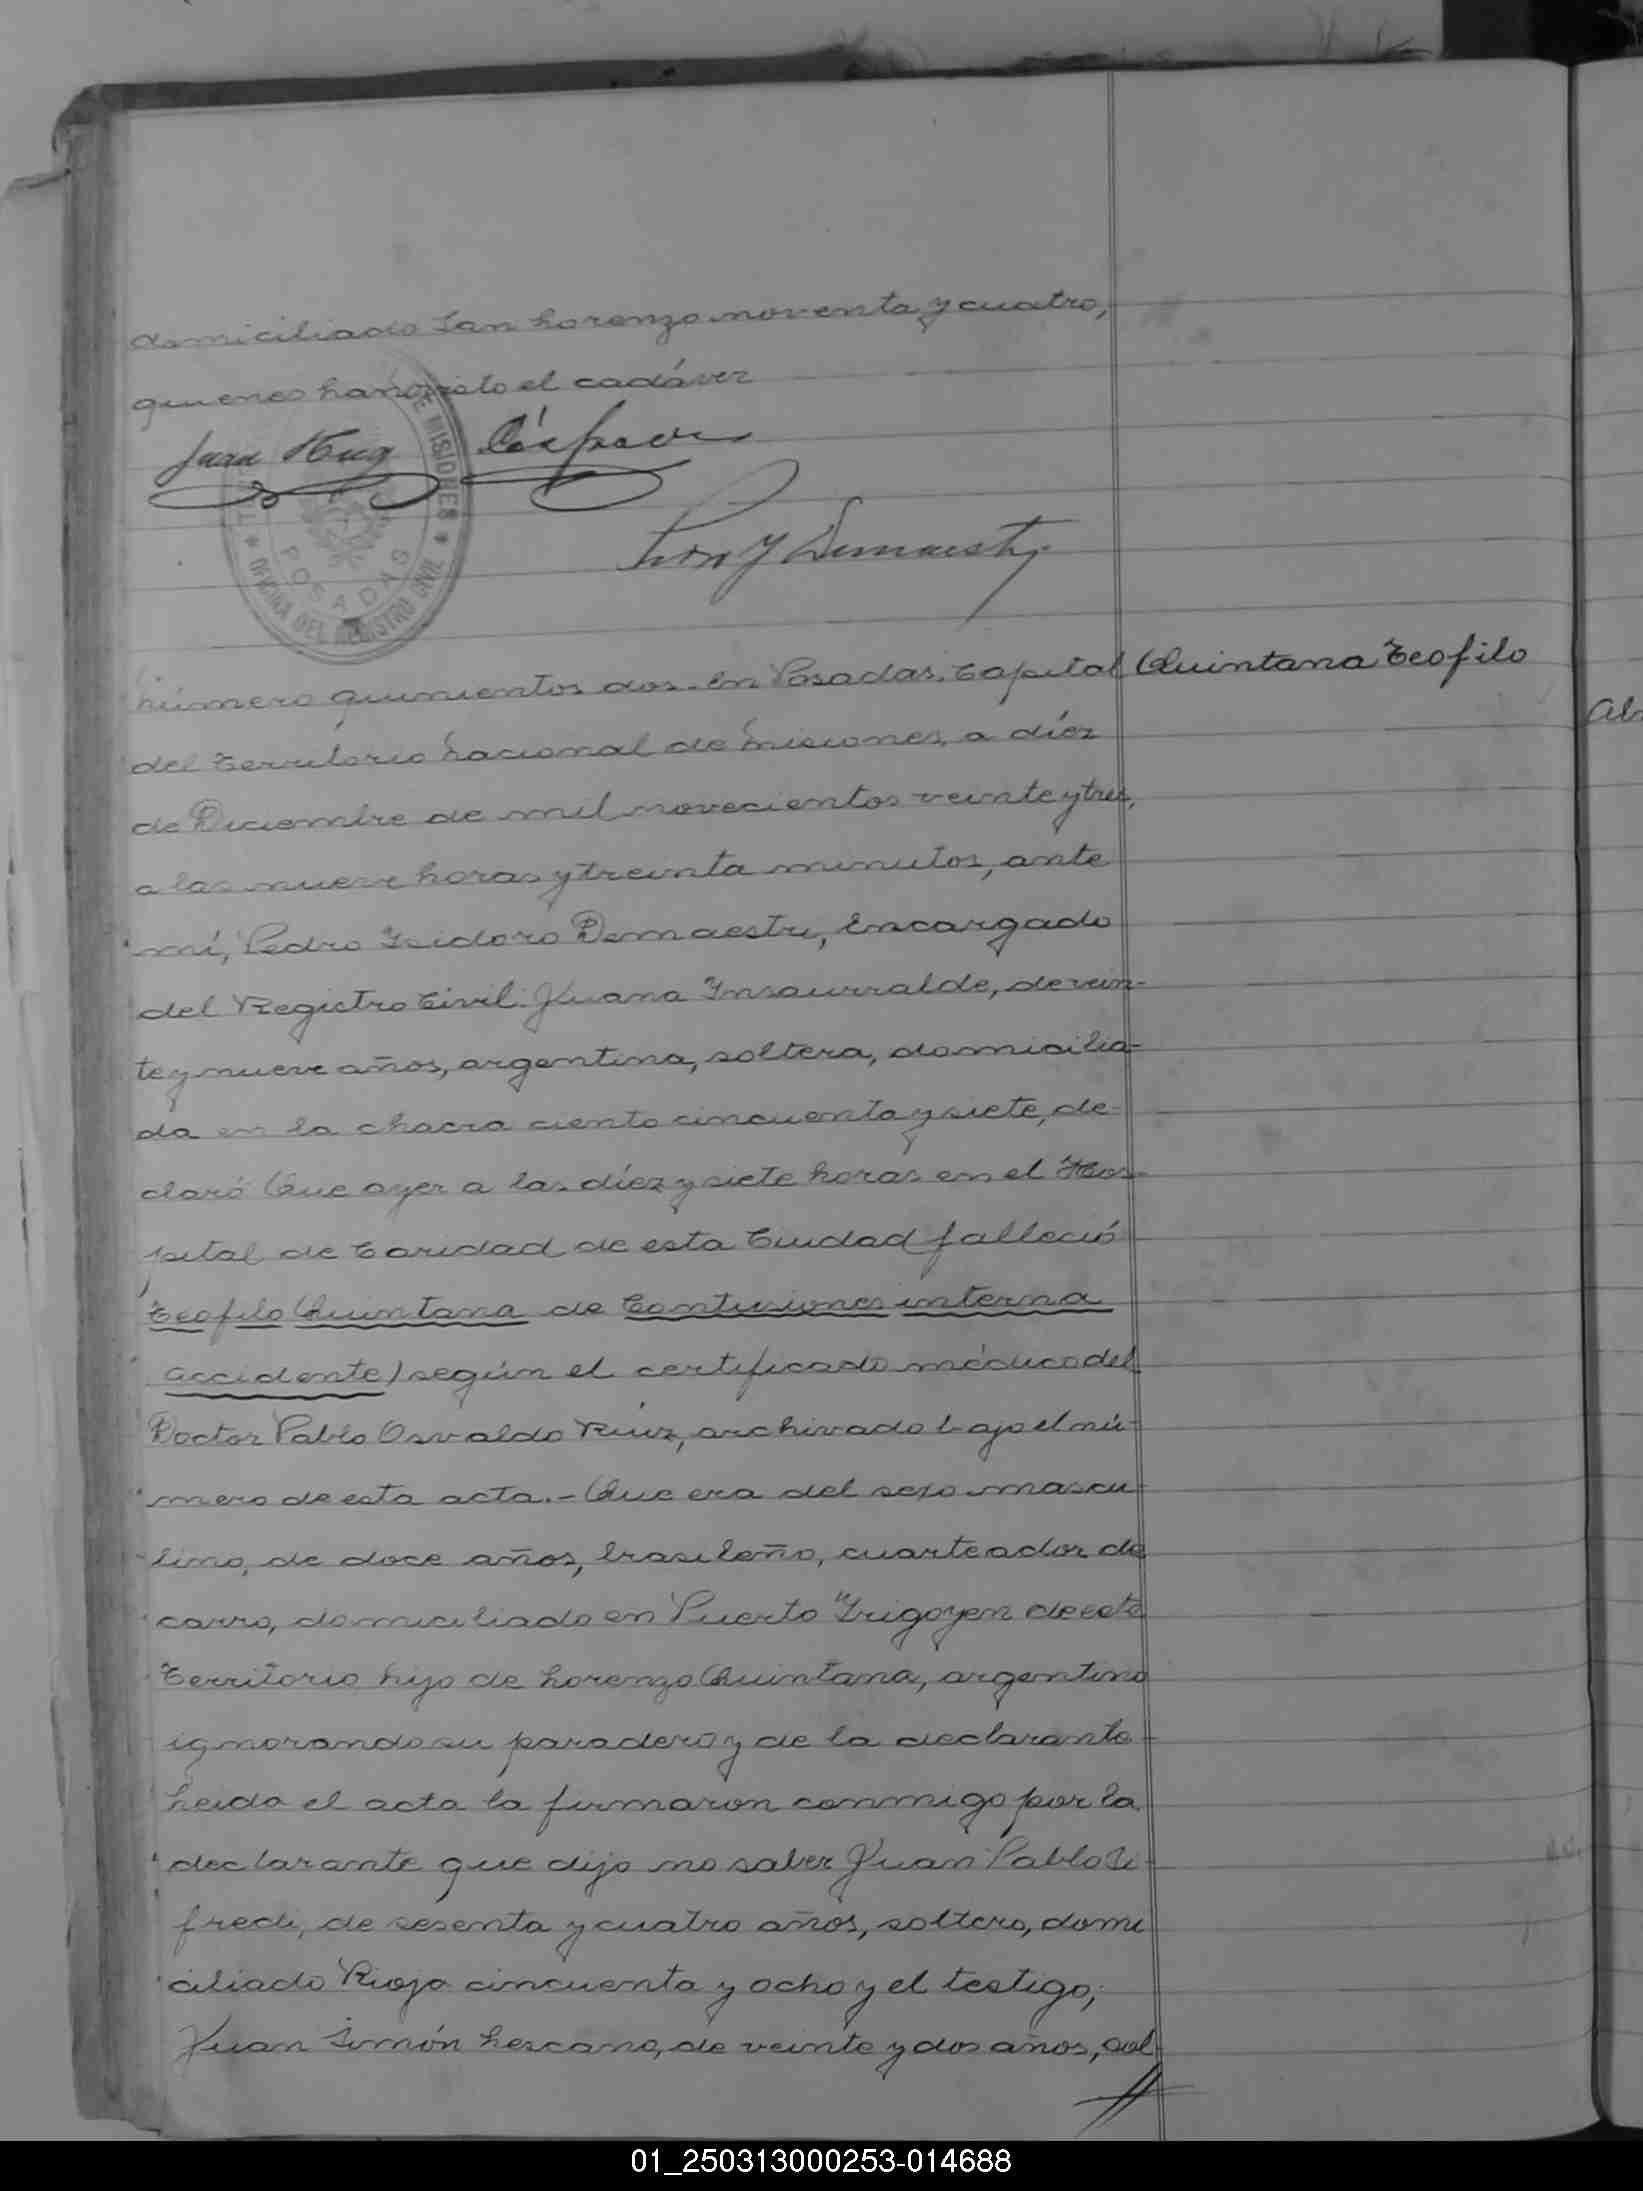 domiciliado San Lorenzo noventa y cuatro,
quienes han visto el cadáver
Juan Hug
DE MISIONES
POSADAS
OFICINA DEL REGISTRO CIVIL
Número quinientos dos. En Posadas, Capital Quintana Teofilo
del Territorio Nacional de Misiones, a díez
de Diciembre de mil novecientos veinte y tres,
a las nueve horas y treinta minutos, ante
mí, Pedro Isidoro Demaestri, Encargado
del Registro Civil: Juana Insaurralde, de vein-
te y nueve años, argentina, soltera, domicilia-
da en la chacra ciento cincuenta y siete, de-
claró Que ayer a las díez y siete horas en el Hos-
pital de Caridad de esta Ciudad falleció
Teofilo Quintana de Contusiones interna
accidente) según el certificado médico del
Doctor Pablo Osvaldo Ruiz, archivado bajo el nú-
mero de esta acta.- Que era del sexo mascu-
lino, de doce años, brasileño, cuarteador de
carro, domiciliado en Puerto Irigoyen de este
Territorio hijo de Lorenzo Quintana, argentino
ignorando su paradero y de la declarante
Leida el acta la firmaron conmigo por la
declarante que dijo no saber Juan Pablo Si-
fredi, de sesenta y cuatro años, soltero, domi
ciliado Rioja cincuenta y ocho y el testigo,
Juan Simón Lescano, de veinte y dos años, sol
//
01_250313000253-014688